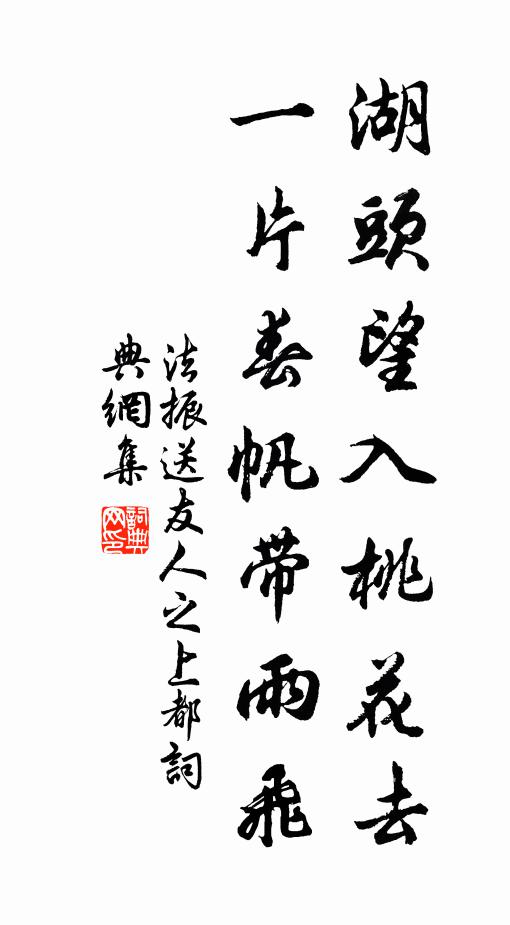 湖頭望入桃花去
一片春帆帶雨飛
法振送友人之上都詞
典網集
詞典
网印